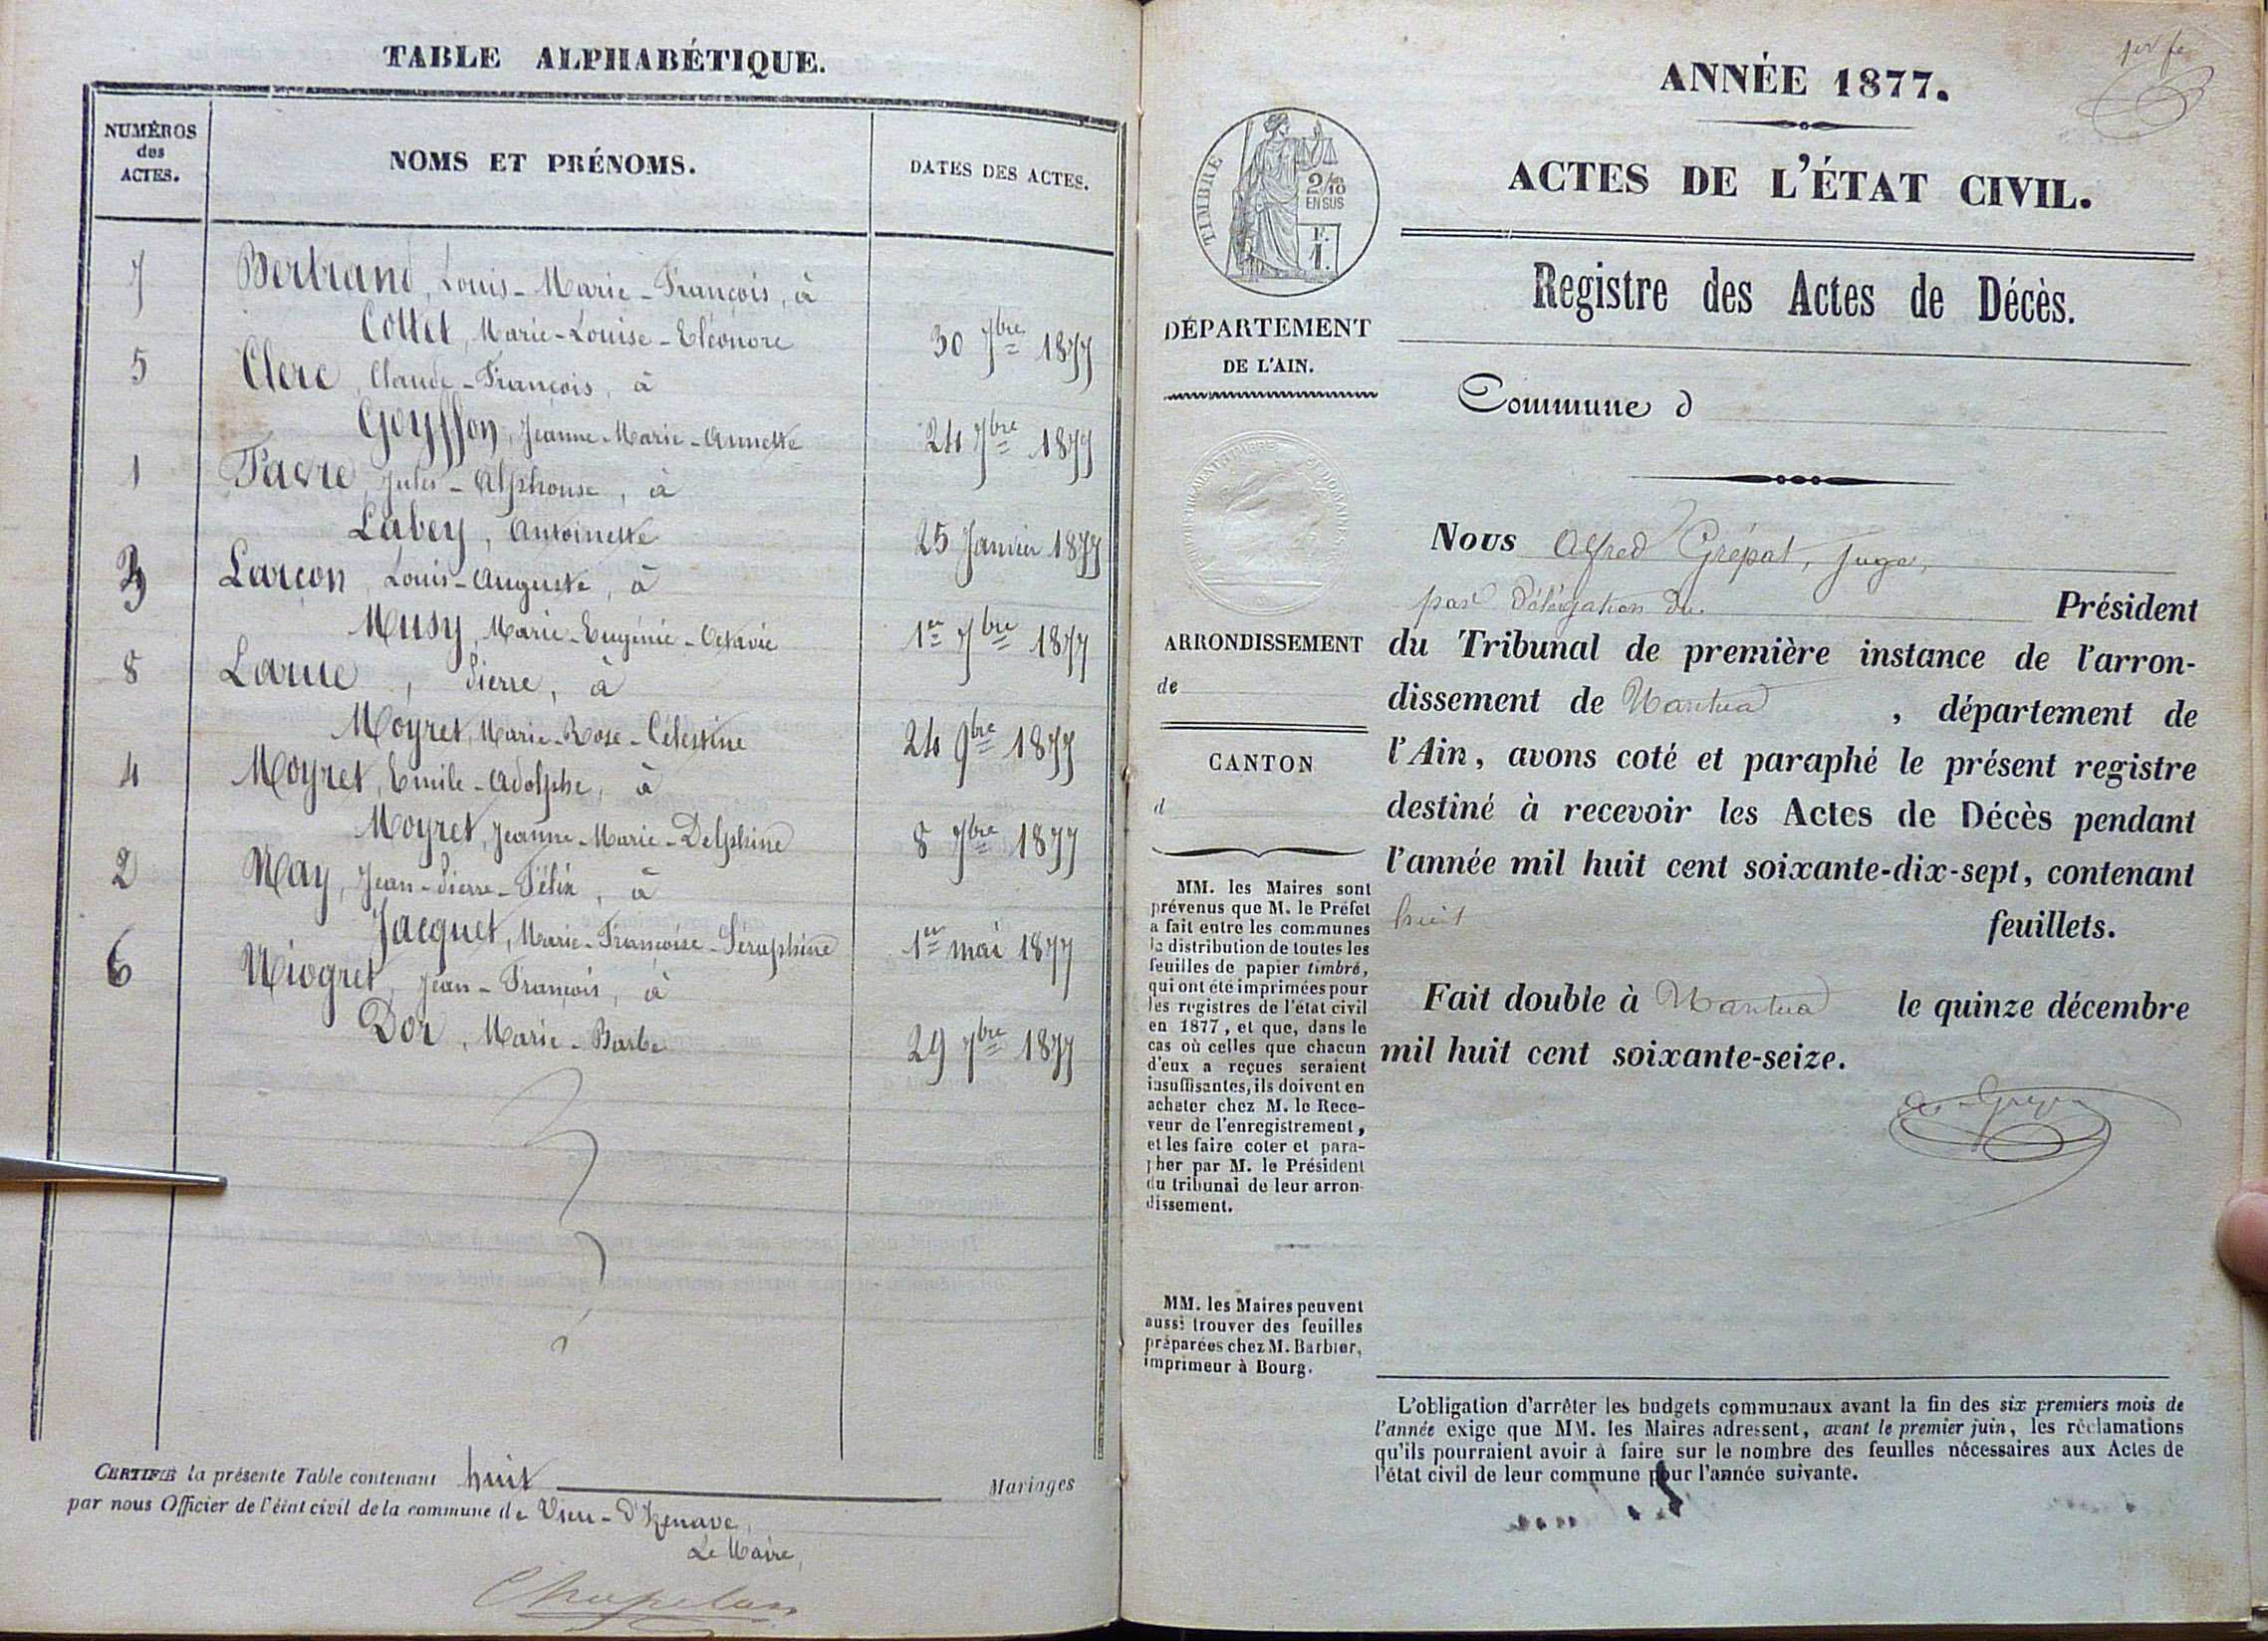 TABLE ALPHABÉTIQUE.
NUMÉROS
des
ACTES.
NOMS ET PRÉNOMS.
DATES DES ACTES.
7 Bertrand, Louis-Marie-François, à
Cottet, Marie-Louise-Eléonore 30 7bre 1877
5 Clerc, Claude-François, à
Goyffon, Jeanne-Marie-Annette 24 7bre 1877
1 Favre, Jules-Alphonse, à
Labey, Antoinette 25 Janvier 1877
3 Larçon, Louis-Auguste, à
Musy, Marie-Eugénie-Octavie 1er 7bre 1877
8 Larue, Pierre, à
Moyret, Marie-Rose-Célestine 24 9bre 1877
4 Moyret, Emile-Adolphe, à
Moyret, Jeanne-Marie-Delphine 8 7bre 1877
2 Nay, Jean-Pierre-Félix, à
Jacquet, Marie-Françoise-Séraphine 1er mai 1877
6 Niogret, Jean-François, à
Dor, Marie-Barbe 29 7bre 1877
CERTIFIÉ la présente Table contenant huit Mariages
par nous Officier de l'état civil de la commune de Vieu-d'Izenave,
Le Maire,
Chapelan
1er fe
ANNÉE 1877.
ACTES DE L'ÉTAT CIVIL.
TIMBRE
2/10
EN SUS
F.
1.
Registre des Actes de Décès.
DÉPARTEMENT
DE L'AIN.
Commune d
Nous Alfred Grépat, Juge,
par Délégation du Président
du Tribunal de première instance de l'arron-
dissement de Nantua, département de
l'Ain, avons coté et paraphé le présent registre
destiné à recevoir les Actes de Décès pendant
l'année mil huit cent soixante-dix-sept, contenant
huit feuillets.
Fait double à Nantua le quinze décembre
mil huit cent soixante-seize.
ARRONDISSEMENT
de
CANTON
d
MM. les Maires sont
prévenus que M. le Préfet
a fait entre les communes
la distribution de toutes les
feuilles de papier timbré,
qui ont été imprimées pour
les registres de l'état civil
en 1877, et que, dans le
cas où celles que chacun
d'eux a reçues seraient
insuffisantes, ils doivent en
acheter chez M. le Rece-
veur de l'enregistrement,
et les faire coter et para-
pher par M. le Président
du tribunal de leur arron-
dissement.
MM. les Maires peuvent
aussi trouver des feuilles
préparées chez M. Barbier,
imprimeur à Bourg.
L'obligation d'arrêter les budgets communaux avant la fin des six premiers mois de
l'année exige que MM. les Maires adressent, avant le premier juin, les réclamations
qu'ils pourraient avoir à faire sur le nombre des feuilles nécessaires aux Actes de
l'état civil de leur commune pour l'année suivante.